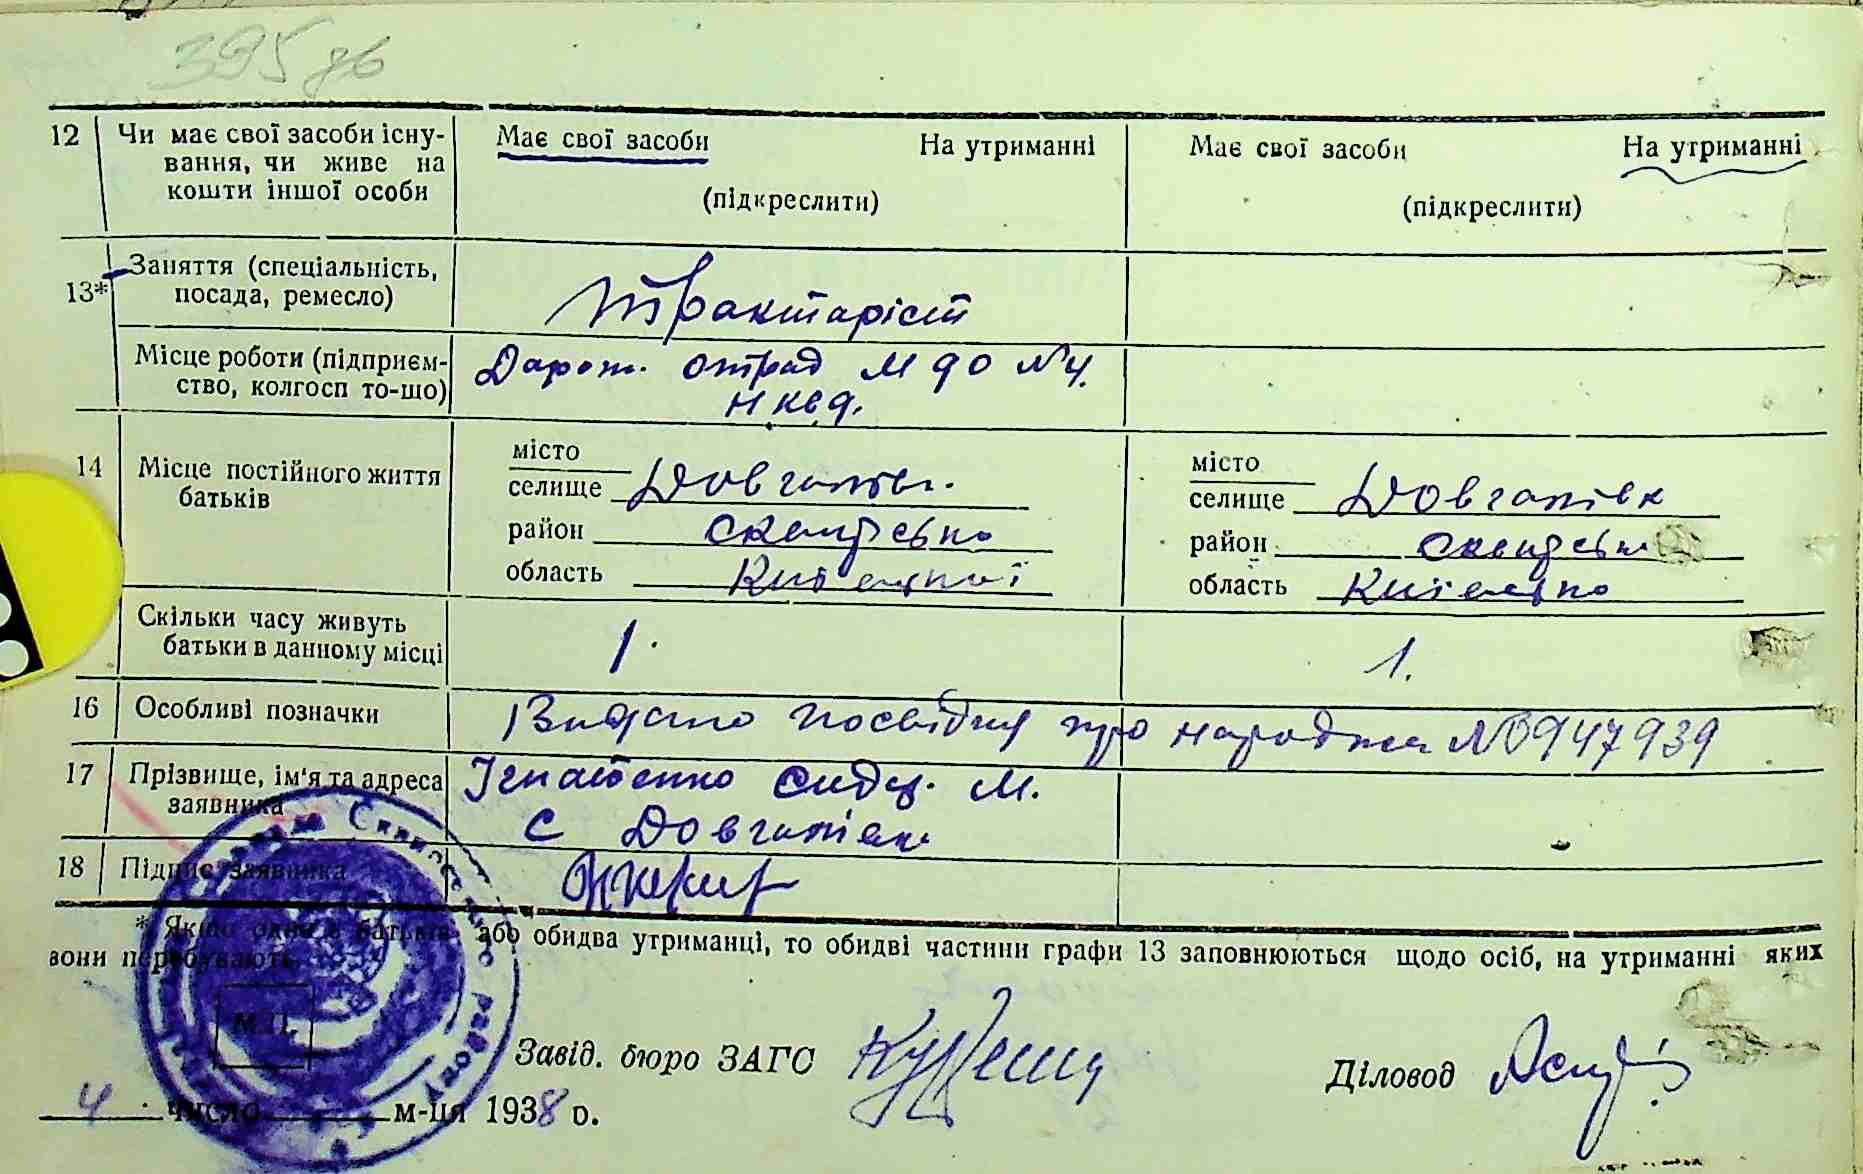 395 зв
12 Чи має свої засоби існу- Має свої засоби На утриманні Має свої засоби На утриманні
вання, чи живе на
кошти іншої особи (підкреслити) (підкреслити)
13* Заняття (спеціальність,
посада, ремесло) Трактаріст
Місце роботи (підприєм- Дорож. отряд М 90 №4.
ство, колгосп то-що) НКВД.
14 Місце постійного життя місто місто
батьків селище Довгалівк. селище Довгалівк
район Сквирсько район Сквирсько
область Київської область Київсько
Скільки часу живуть 1. 1.
батьки в данному місці
16 Особливі позначки Видано посвідку про народжен №0947939
17 Прізвище, ім'я та адреса Ігнатенко М.
заявника С Довгалівк
18 Підпис заявника
* Якщо один з батьків або обидва утриманці, то обидві частини графи 13 заповнюються щодо осіб, на утриманні яких
вони перебувають.
М.П.
Завід. бюро ЗАГС Діловод
4 число м-ця 1938 р.